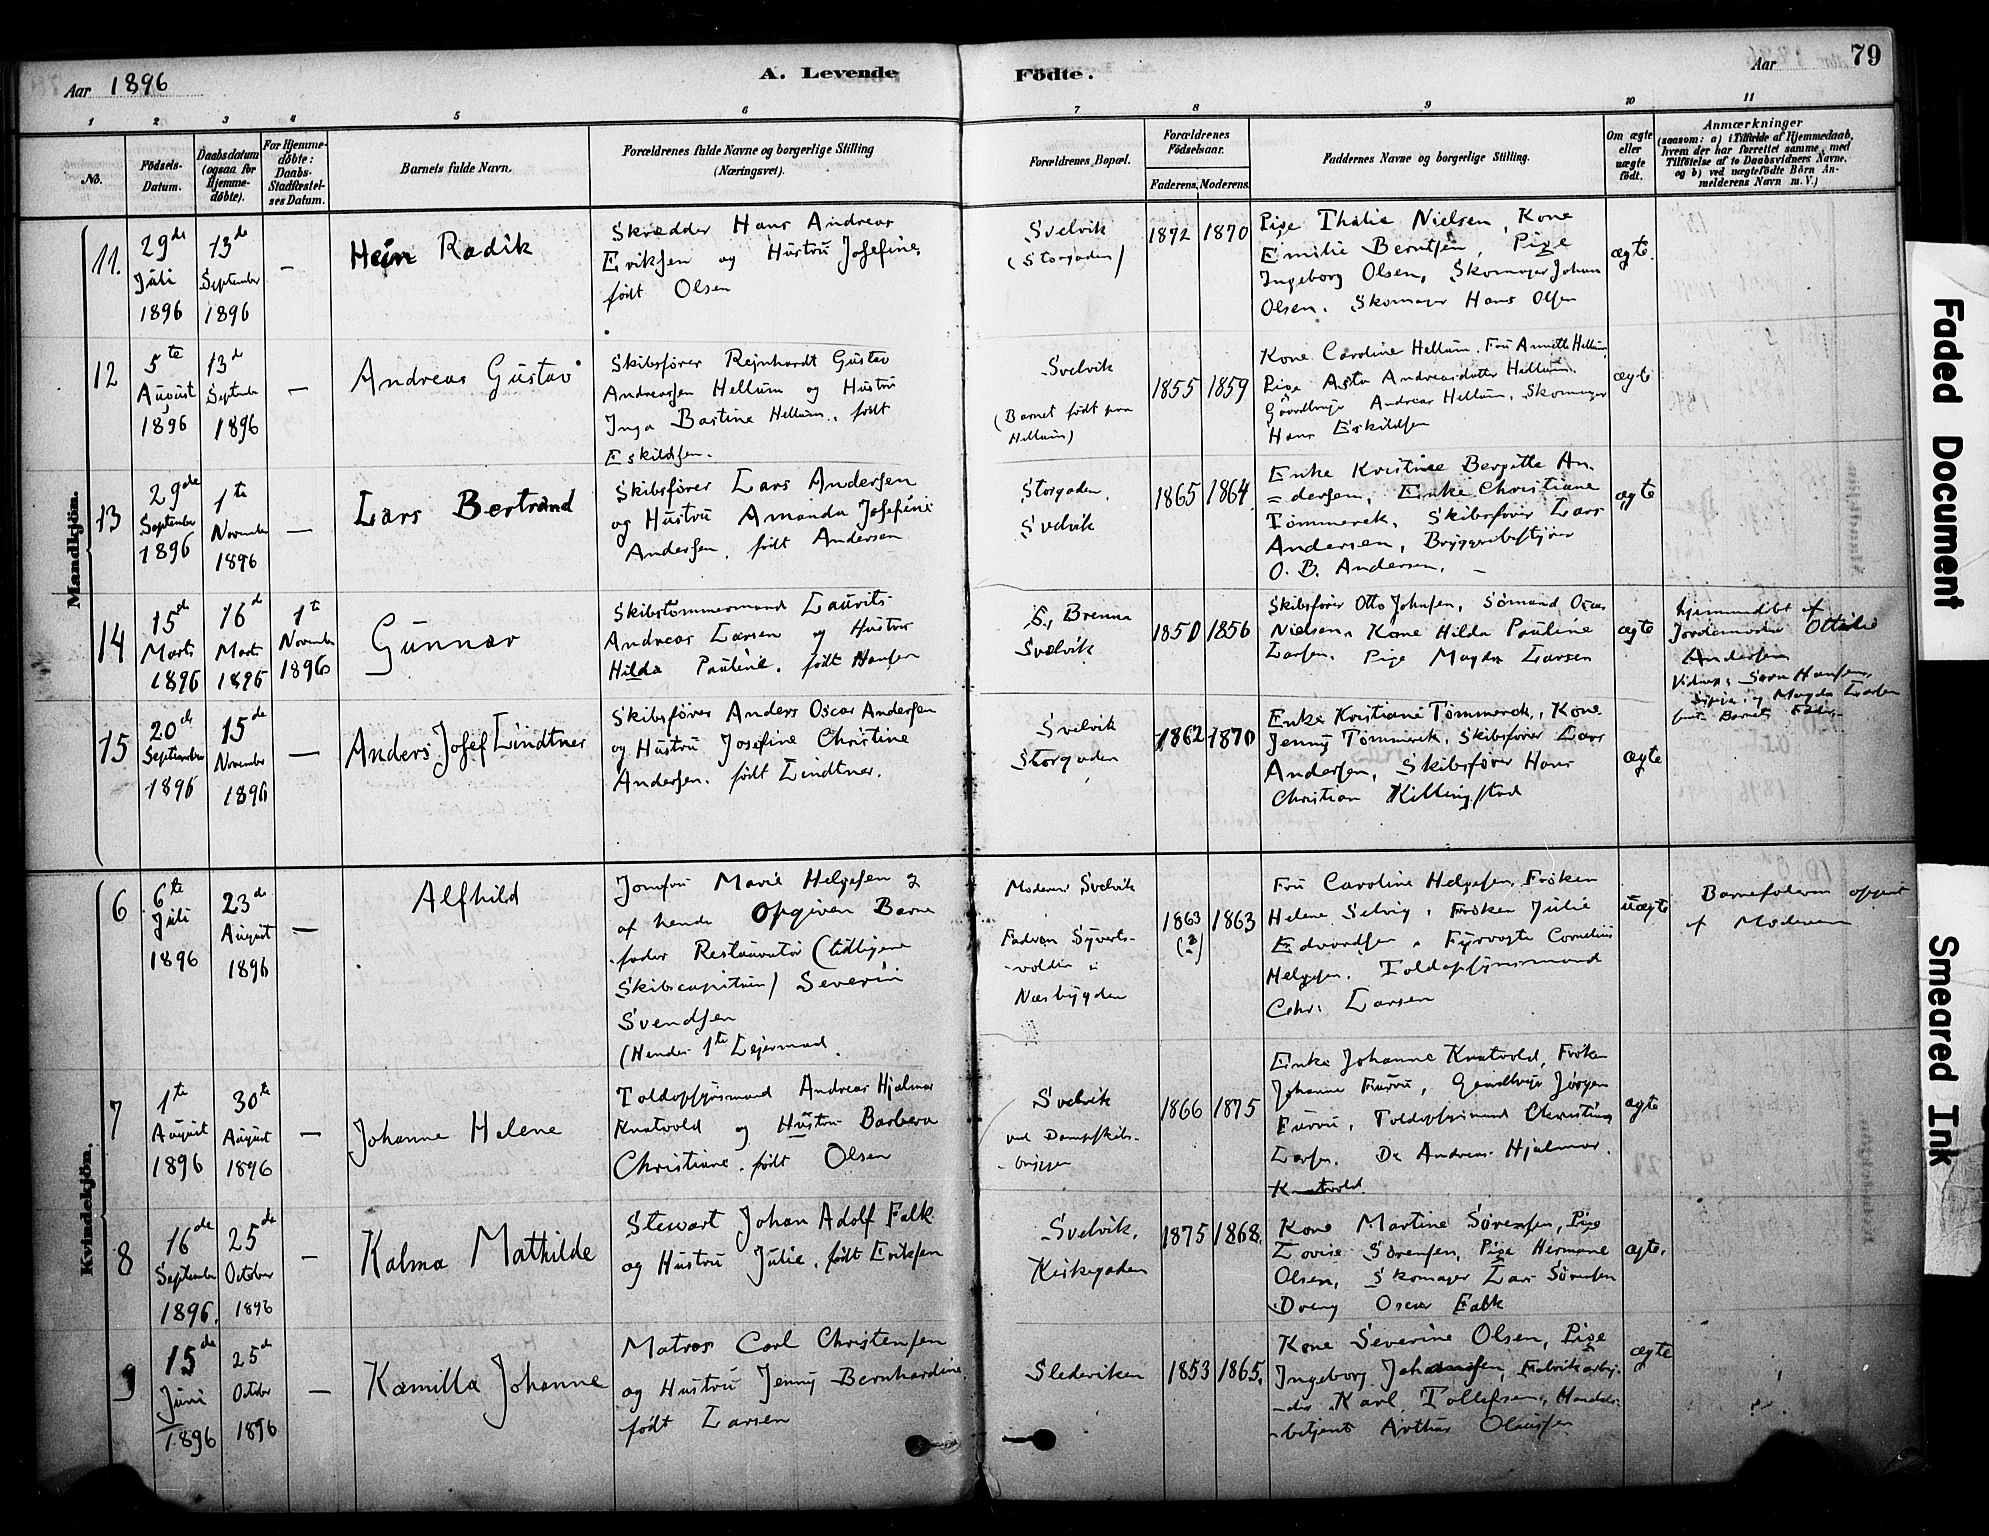 Aar 1896
A. Levende Födte.
Aar
79
1 2 3 4 5 6 7 8 9 10 11
No.
Födsels-
Datum.
Daabsdatum
(ogsaa for
Hjemme-
döbte).
For Hjemme-
döbte:
Daabs-
Stadfæstel-
ses Datum.
Barnets fulde Navn.
Forældrenes fulde Navne og borgerlige Stilling
(Næringsvei).
Forældrenes Bopæl.
Forældrenes
Födselsaar.
Faderens. Moderens.
Faddernes Navne og borgerlige Stilling.
Om ægte
eller
uægte
födt.
Anmærkninger
(saasom: a) i Tilfælde af Hjemmedaab,
hvem der har forrettet samme, med
Tilföielse af to Daabsvidners Navne,
og b) ved uægtefödte Börn An-
melderens Navn m. V.)
Mandkjön.
11.
29de
Juli
1896
13de
September
1896
–
Hein Radik
Skrædder Hans Andreas
Eriksen og Hustru Josefine,
født Olsen
Svelvik
(Storgaden)
1872 1870
Pige Thalie Nielsen, Kone
Emilie Berntsen, Pige
Ingeborg Olsen, Skomager Johan
Olsen, Skomager Hans Olsen
ægte.
12
5te
August
1896
13d
September
1896
–
Andreas Gustav
Skibsfører Rejnhardt Gustav
Andreassen Hellum og Hustru
Inga Bastine Hellum, født
Eskildsen.
Svelvik
(Barnet født paa
Hellum)
1855 1859
Kone Caroline Hellum, Fru Annette Hellum,
Pige Asta Andreasdatter Hellum,
Gaardbruger Andreas Hellum, Skomager
Hans Eskildsen
ægte
13
29de
September
1896
1te
November
1896
–
Lars Bertrand
Skibsfører Lars Andersen
og Hustru Amanda Josefine
Andersen, født Andersen
Storgaden,
Svelvik
1865 1864
Enke Kristine Bergitte An-
dersen, Enke Christiane
Tømmerek, Skibsfører Lars
Andersen, Bryggeribestyrer
O. B. Andersen. –
ægte
14
15de
Marts
1896
16d
Marts
1896
1te
November
1896
Gunnar
Skibstømmermand Laurits
Andreas Larsen og Hustru
Hilda Pauline, født Hansen
Brenna
Svelvik
1850 1856
Skibsfører Otto Johnsen, Sømand Oscar
Nielsen, Kone Hilda Pauline
Larsen, Pige Magda Larsen
ægte
hjemmedøbt af
Jordemoder Ottilie
Andersen
Vidner: Hansen,
og Magda Larsen
Barnets Fader.
15
20de
September
1896
15de
November
1896
–
Anders Josef Lindtner
Skibsfører Anders Oscar Andersen
og Hustru Josefine Christine
Andersen, født Lindtner.
Svelvik
Storgaden
1862 1870
Enke Kristiane Tømmerek, Kone
Jenny Tømmerek, Skibsfører Lars
Andersen, Skibsfører Hans
Christian Killingstad
ægte
Kvindekjön.
6
6te
Juli
1896
23de
August
1896
–
Alfhild
Jomfru Marie Helgesen og
af hende Opgiven Barne
fader Restauratør (tidligere
Skibscapitain) Severin
Svendsen
(Hendes 1te Lejermaal.
Moderen Svelvik
Faderen Syverts-
volden i
Næsbygden
1863
(?)
1863
Fru Caroline Helgesen, Frøken
Helene Selvig, Frøken Julie
Edvardsen, Fyrvogte Cornelius
Helgesen, Toldopsynsmand
Chr. Larsen
uægte
Barnefaderen opgivet
af Moderen
7
1te
August
1896
30te
August
1896
–
Johanne Helene
Toldopsynsmand Andreas Hjalmar
Knatvold og Hustru Barbara
Christiane, født Olsen
Svelvik
ved Dampskibs-
bryggen
1866 1875
Enke Johanne Knatvold, Frøken
Johanne Furru, Gaardbruger Jørgen
Furru, Toldopsynsmand Christian
Larsen, Do Andreas Hjalmar
Knatvold.
ægte
8
16de
September
1896.
25de
October
1896
–
Kalma Mathilde
Stewart Johan Adolf Falk
og Hustru Julie, født Eriksen
Svelvik,
Kirkegaden
1875 1868.
Kone Martine Sørensen, Pige
Lovise Sørensen, Pige Hermane
Olsen, Skomager Lars Sørensen
Dreng Oscar Falk
ægte.
9
15de
Juni
1896
25de
October
1896
–
Kamilla Johanne
Matros Carl Christensen
og Hustru Jenny Bernhardine,
født Larsen
Slederiken
1853 1865.
Kone Severine Olsen, Pige
Ingeborg Johannesen, Fabrikarbej-
der Karl Tollefsen, Handels-
betjent Arthur Olaussen
ægte
Faded Document
Smeared Ink